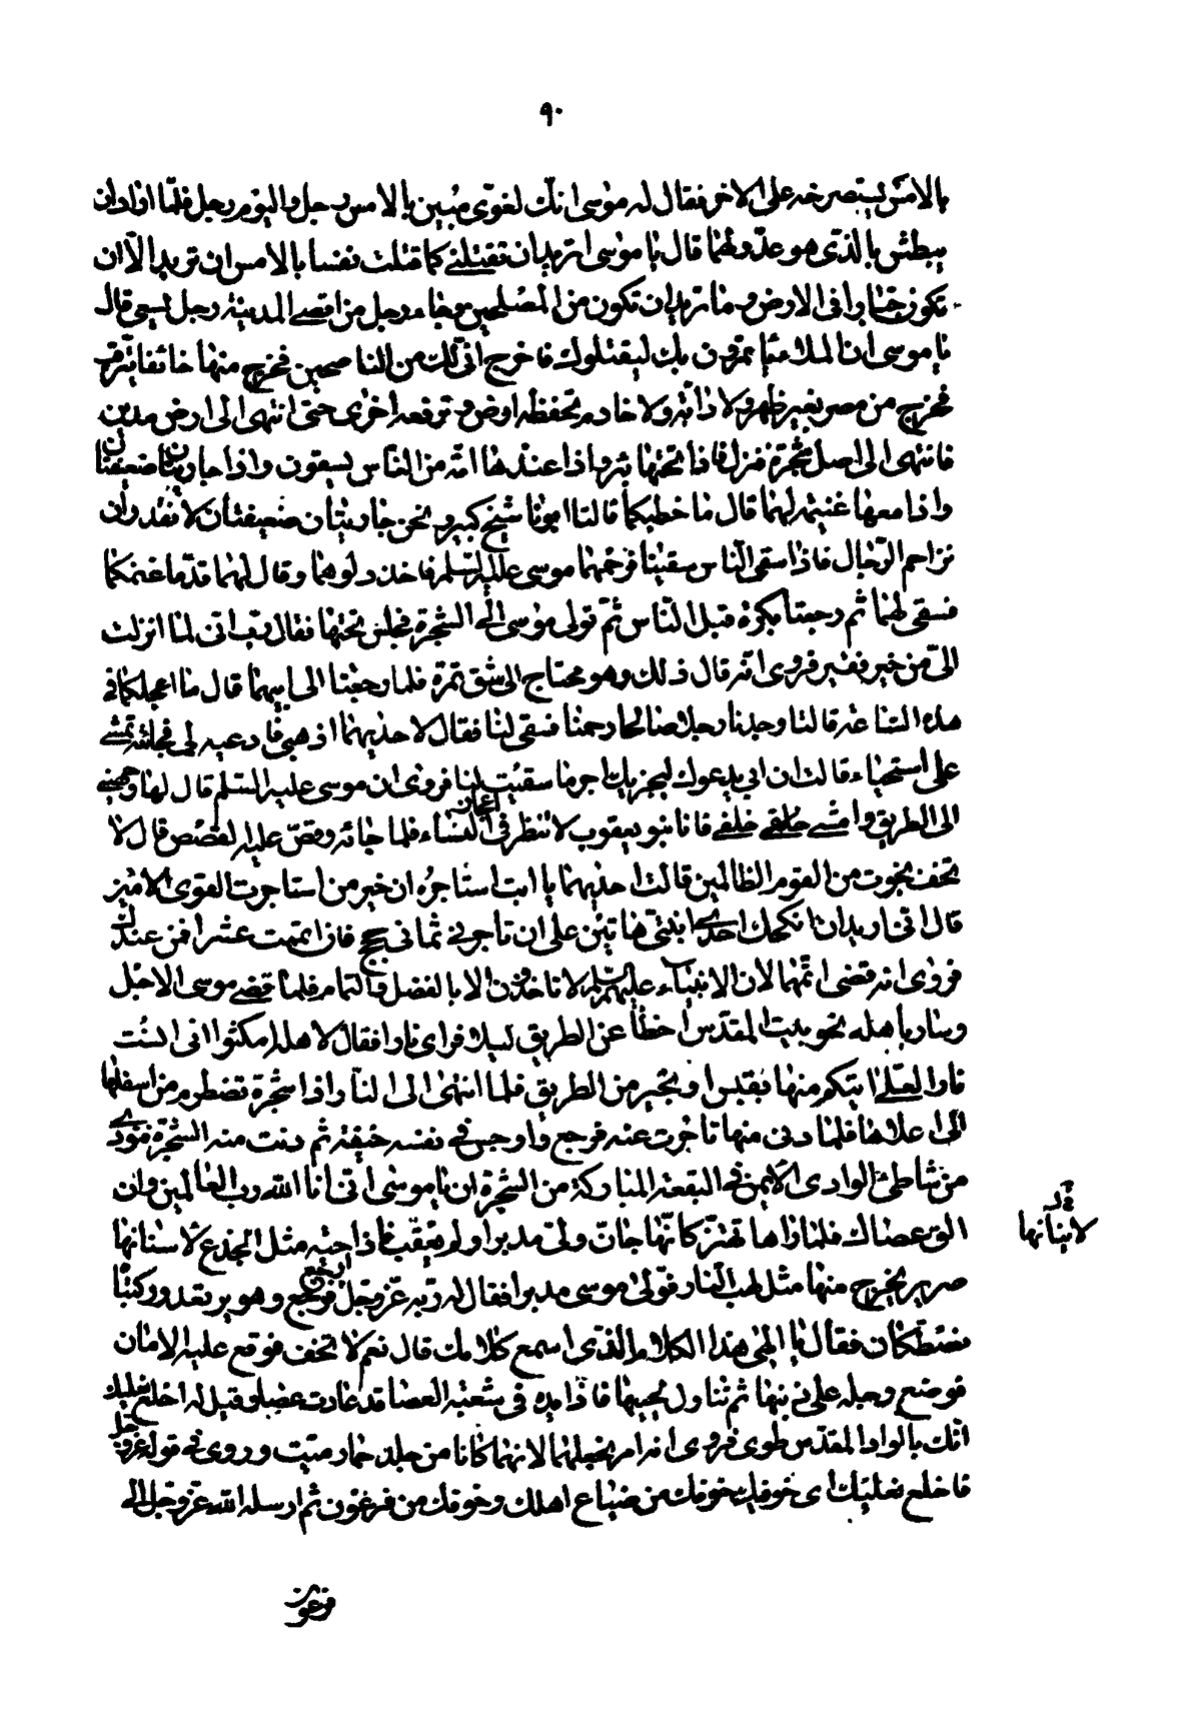 ٩٠
بالامس يستصرخه على الاخر فقال له موسى انك لغوى مبين بالامس رجل واليوم رجل فلما اراد ان
يبطش بالذى هو عدو لهما قال يا موسى اتريد ان تقتلنى كما قتلت نفسا بالامس ان تريد الا ان
تكون جبارا فى الارض وما تريد ان تكون من المصلحين وجاء رجل من اقصى المدينة رجل يسعى قال
يا موسى ان الملا يأتمرون بك ليقتلوك فاخرج انى لك من الناصحين فخرج منها خائفا يترقب
فخرج من مصر بغير ظهر ولا دابة ولا خادم تخفظه ارض وترفعه اخرى حتى انتهى الى ارض مدين
فانتهى الى اصل شجرة فنزل فاذا تحتها بئر واذا عندها امة من الناس يسقون واذا جاريتان ضعيفتان
واذا معها غنيمة لهما قال ما خطبكما قالتا ابونا شيخ كبير ونحن جاريتان ضعيفتان لا نقدر ان
نزاحم الرجال فاذا سقى الناس سقينا فرحمهما موسى عليه السلم فاخذ دلوهما وقال لهما قدما غنمكما
فسقى لهما ثم رجعتا بكرة قبل الناس ثم تولى موسى الى الشجرة فجلس تحتها فقال رب انى لما انزلت
الى من خير فقير فروى انه قال ذلك وهو محتاج الى شق تمرة فلما رجعتا الى ابيهما قال ما اعجلكما فى
هذه الساعة قالتا وجدنا رجلا صالحا رحمنا فسقى لنا فقال لاحديهما اذهبى فادعيه لى فجائته تمشى
على استحياء قالت ان ابى يدعوك ليجزيك اجر ما سقيت لنا فروى ان موسى عليه السلم قال لها وجهينى
الى الطريق وامشى خلفى فانا بنو يعقوب لا ننظر فى اعجاز النساء فلما جائه وقص عليه القصص قال لا
تخف نجوت من القوم الظالمين قالت احديهما يا ابت استاجره ان خير من استاجرت القوى الامين
قال انى اريد ان انكحك احدى ابنتى هاتين على ان تاجرنى ثمانى حجج فان اتممت عشرا فمن عندك
فروى انه قضى اتمهما لان الانبياء عليهم السلم لا تاخذون الا بالفضل والتمام فلما قضى موسى الاجل
وسار باهله نحو بيت المقدس اخطأ عن الطريق ليلا فراى نارا فقال لاهله امكثوا انى انست
نارا لعلى اتيكم منها بقبس او بخبر من الطريق فلما انتهى الى النار اذا شجرة تضطرم من اسفلها
الى اعلاها فلما دنى منها تاخرت عنه فرجع واوجس فى نفسه خيفة ثم دنت منه الشجرة فنودى
من شاطئ الوادى الايمن فى البقعة المباركة من الشجرة ان يا موسى انى انا الله رب العالمين وان
الق عصاك فلما راها تهتز كانها جان ولى مدبرا ولم يعقب فاذا حية مثل الجذع لاسنانها
لانيابها
صرير يخرج منها مثل لهب النار فولى موسى مدبرا فقال له ربه عز وجل ارجع فرجع وهو يرتعد وركبتاه
تصطكان فقال يا الهى هذا الكلام الذى اسمع كلامك قال نعم لا تخف فوقع عليه الامان
فوضع رجله على ذنبها ثم تناول لحييها فاذا يده فى شعبة العصا قد عادت عصا وقيل له اخلع نعليك
انك بالواد المقدس طوى فروى انه امر بخلعهما لانهما كانا من جلد حمار ميت وروى فى قوله عز وجل
فاخلع نعليك اى خوفيك خوفك من ضياع اهلك وخوفك من فرعون ثم ارسله الله عز وجل الى
فرعون